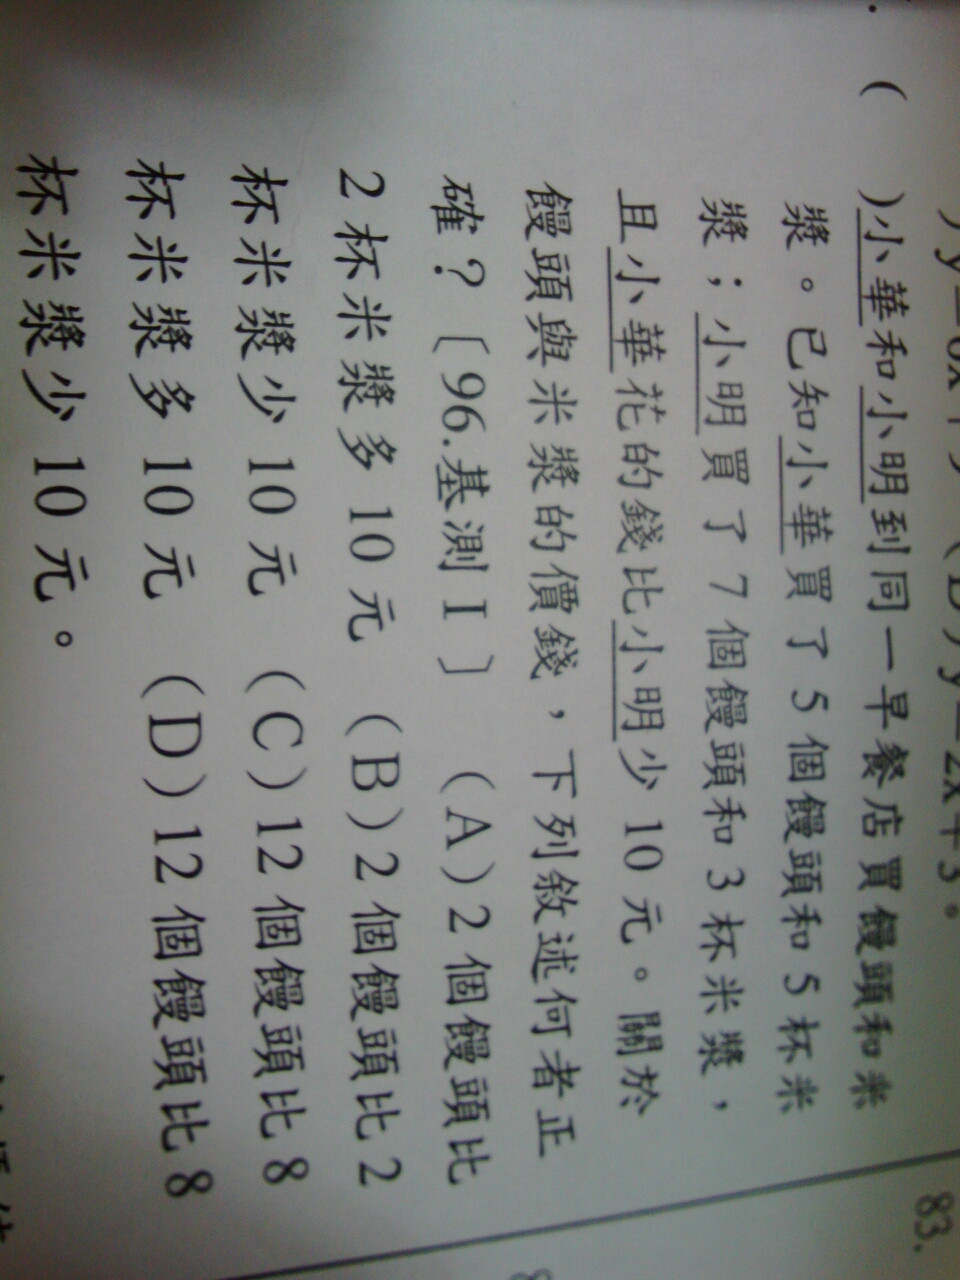 )y=6x+9 (D)y=2x+3。
( )小華和小明到同一早餐店買饅頭和米
漿。已知小華買了5個饅頭和5杯米
漿；小明買了7個饅頭和3杯米漿，
且小華花的錢比小明少10元。關於
饅頭與米漿的價錢，下列敘述何者正
確？〔96.基測I〕 (A)2個饅頭比
2杯米漿多10元 (B)2個饅頭比2
杯米漿少10元 (C)12個饅頭比8
杯米漿多10元 (D)12個饅頭比8
杯米漿少10元。
83.